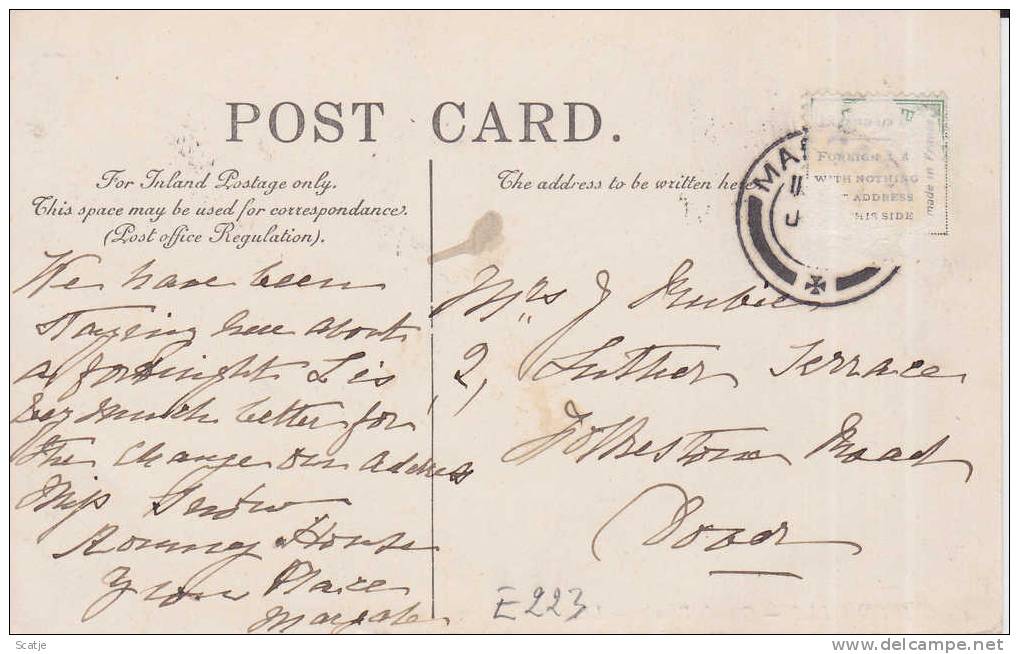 POST CARD.
For Inland Postage only.
This space may be used for correspondance.
(Post office Regulation).
The address to be written here
MA
FOREIGN
WITH NOTHING
ADDRESS
THIS SIDE
made in France
We have been
staying here about
a fortnight L is
very much better for
the change our address
Miss Snow
House
Place
Margate
Mrs J
2, Luther Terrace
Folkestone Road
Dover
E223
Scatje
www.delcampe.net